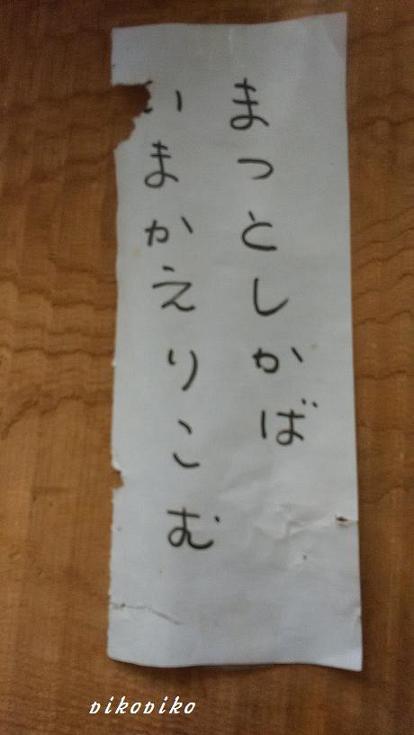 まつとしかば
いまかえりこむ
nikoniko